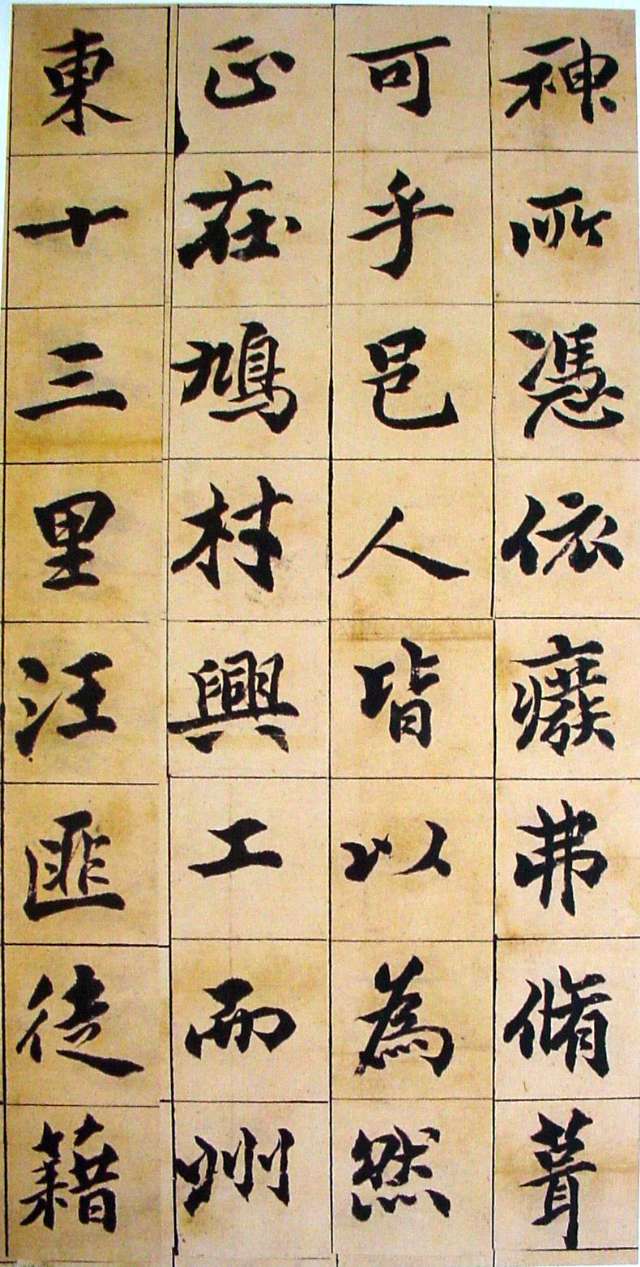 神所憑依癈弗脩葺
可乎邑人皆以為然
正在鳩材興工而州
東十三里汪匪徒藉